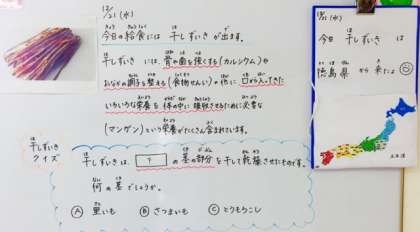 12/21(水)
今日の給食には 干しずいき が出ます。
干しずいき には 骨や歯を強くする(カルシウム)や
おなかの調子を整える(食物せんい)の他に 口から入ってきた
いろいろな栄養を 体の中に吸収させるために必要な
(マンガン)という栄養がたくさん含まれています。
干しずいき
クイズ
干しずいきは、 ? の茎の部分を干して乾燥させたものです。
何の茎でしょうか。
Ⓐ 里いも Ⓑ さつまいも Ⓒ とうもろこし
12/21(水)
今日 干しずいき は
徳島県 から来たよ